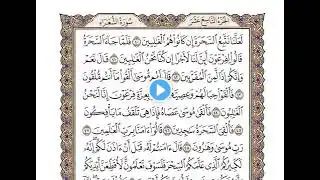 الجزء التاسع عشر
سورة الشعراء
لَعَلَّنَا نَتَّبِعُ ٱلسَّحَرَةَ إِن كَانُوا۟ هُمُ ٱلْغَٰلِبِينَ ٤٠ فَلَمَّا جَآءَ ٱلسَّحَرَةُ
قَالُوا۟ لِفِرْعَوْنَ أَئِنَّ لَنَا لَأَجْرًا إِن كُنَّا نَحْنُ ٱلْغَٰلِبِينَ ٤١ قَالَ نَعَمْ
وَإِنَّكُمْ إِذًا لَّمِنَ ٱلْمُقَرَّبِينَ ٤٢ قَالَ لَهُم مُّوسَىٰٓ أَلْقُوا۟ مَآ أَنتُم مُّلْقُونَ
٤٣ فَأَلْقَوْا۟ حِبَالَهُمْ وَعِصِيَّهُمْ بِعِزَّةِ فِرْعَوْنَ إِنَّا لَنَحْنُ
ٱلْغَٰلِبُونَ ٤٤ فَأَلْقَىٰ مُوسَىٰ عَصَاهُ فَإِذَا هِىَ تَلْقَفُ مَا يَأْفِكُونَ
٤٥ فَأُلْقِىَ ٱلسَّحَرَةُ سَٰجِدِينَ ٤٦ قَالُوٓا۟ ءَامَنَّا بِرَبِّ ٱلْعَٰلَمِينَ ٤٧
رَبِّ مُوسَىٰ وَهَٰرُونَ ٤٨ قَالَ ءَامَنتُمْ لَهُۥ قَبْلَ أَنْ ءَاذَنَ لَكُمْ إِنَّهُۥ
لَكَبِيرُكُمُ ٱلَّذِى عَلَّمَكُمُ ٱلسِّحْرَ فَلَسَوْفَ تَعْلَمُونَ لَأُقَطِّعَنَّ أَيْدِيَكُمْ